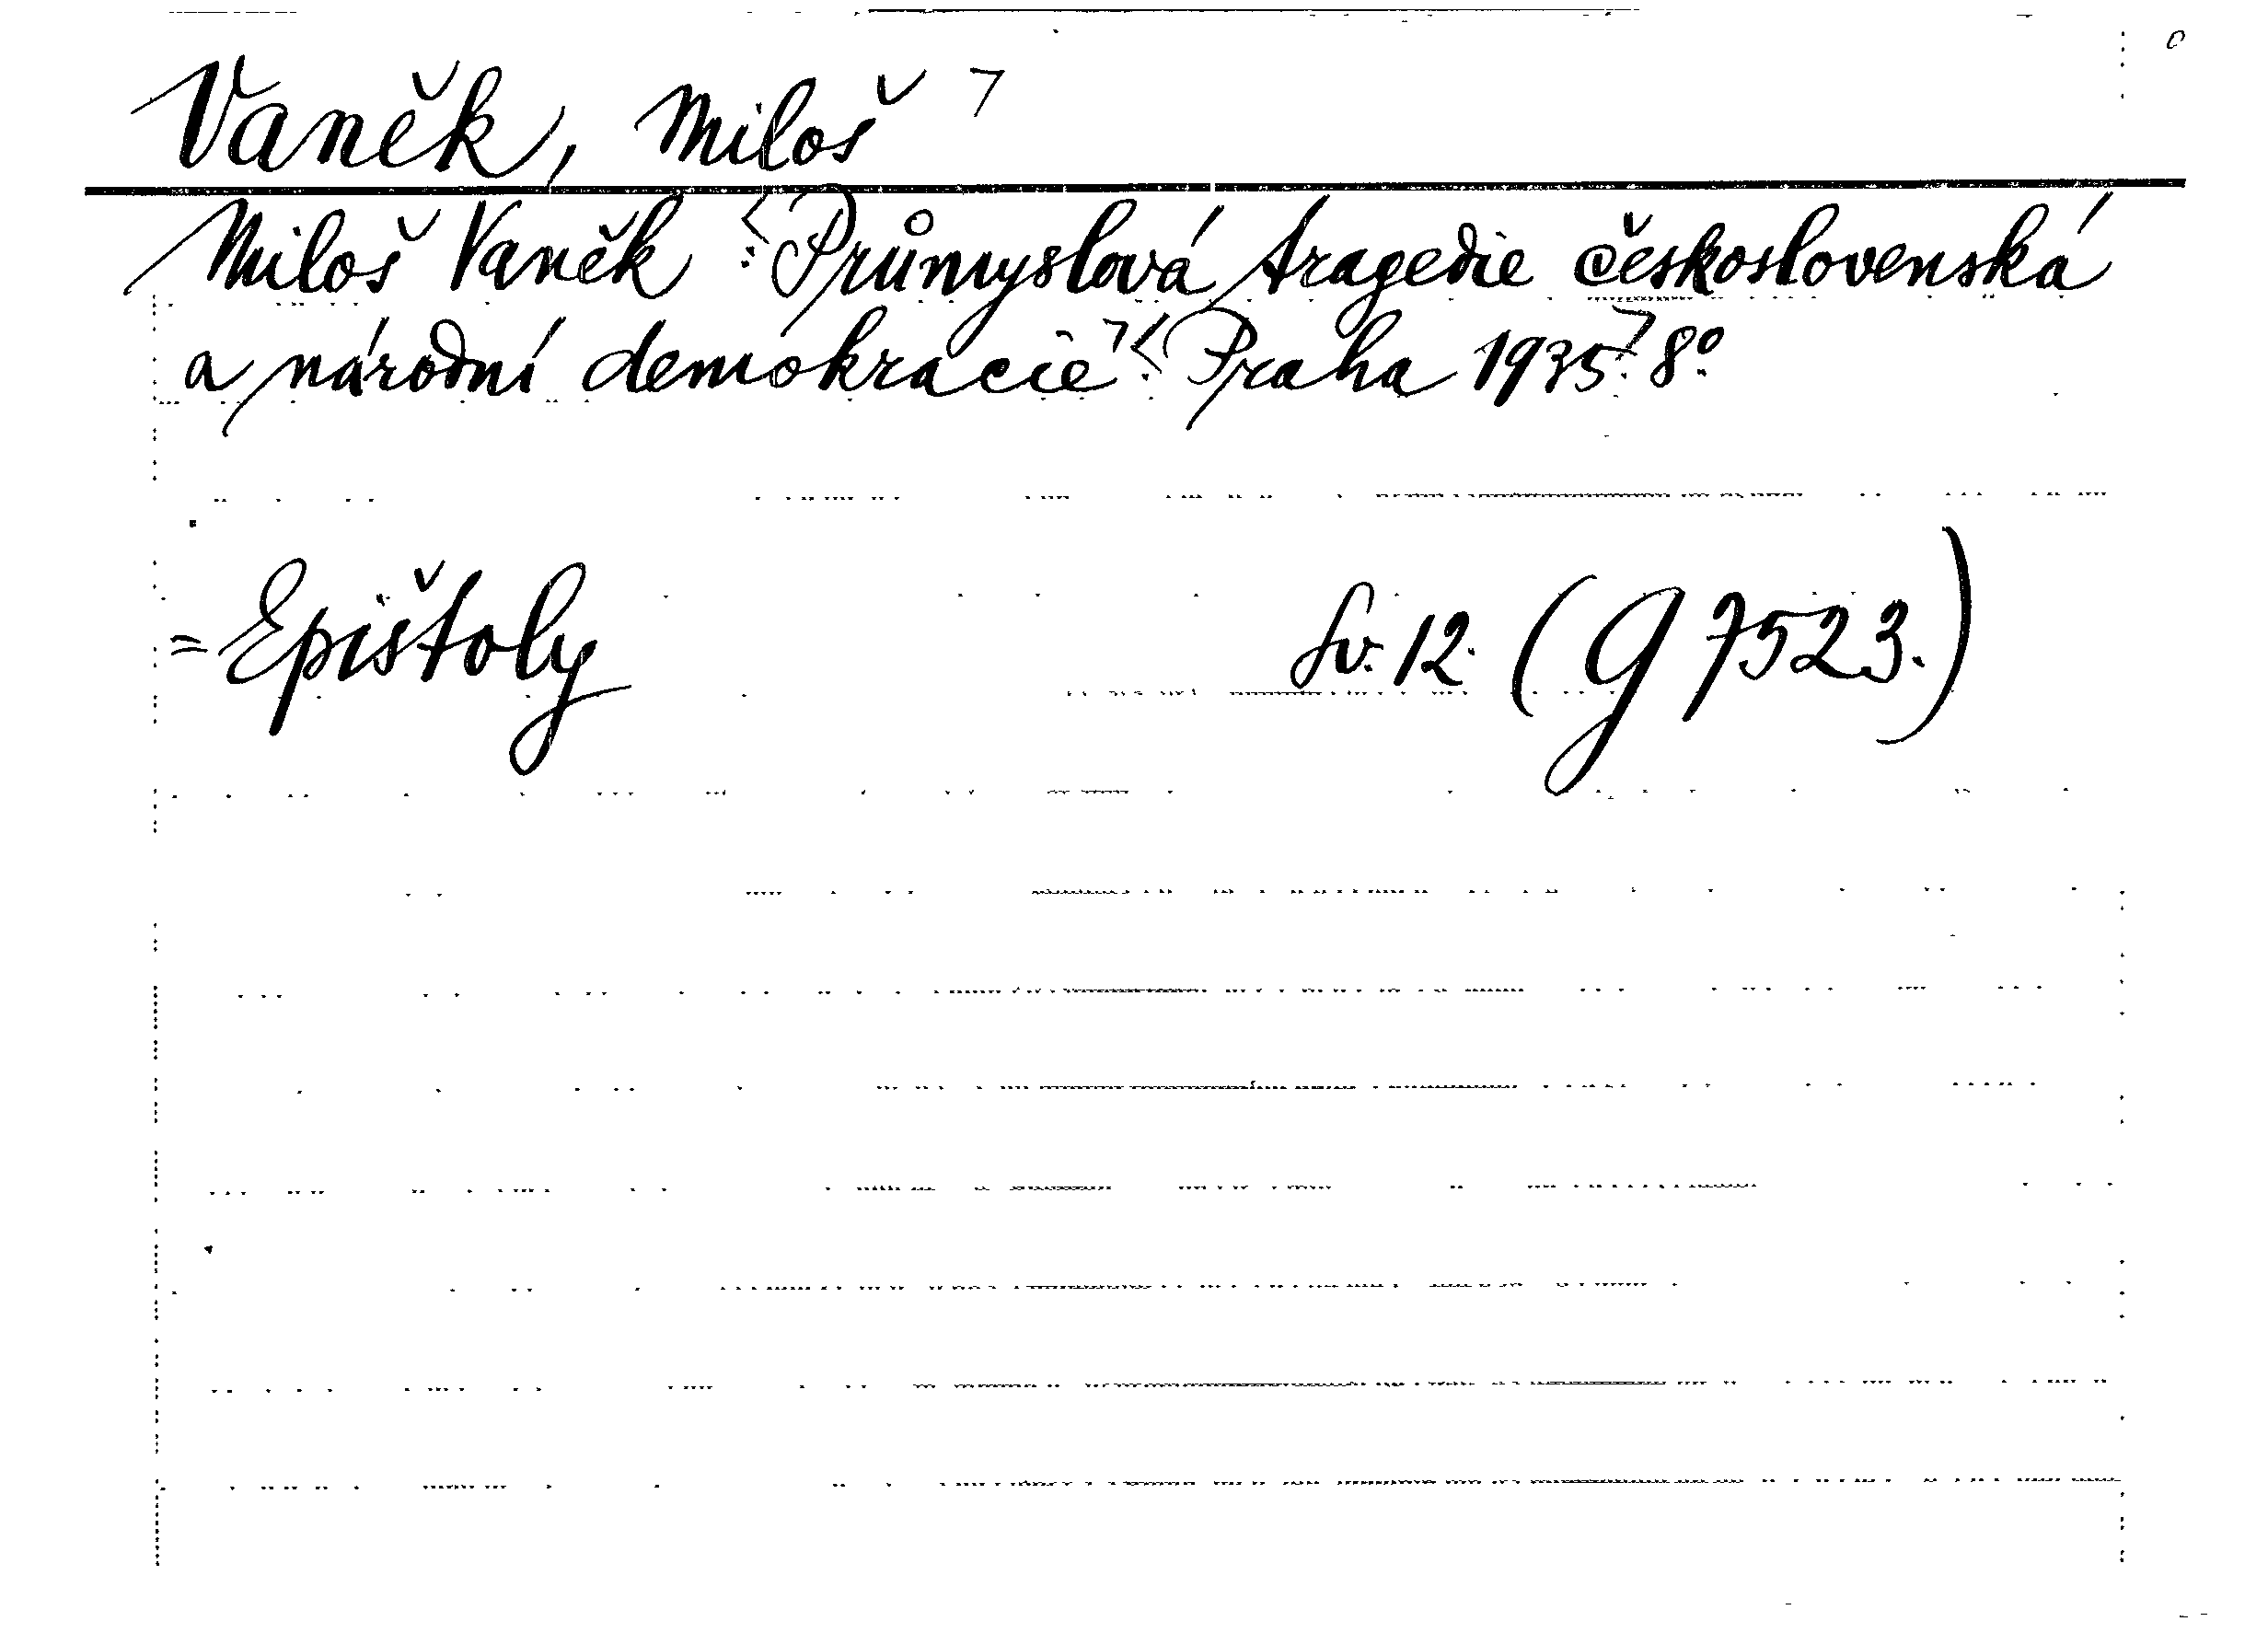 Vaněk, Miloš
Miloš Vaněk: Průmyslová tragedie československá
a národní demokracie. Praha 1935. 8°.
=Epištoly Sv. 12. (G 7523.)